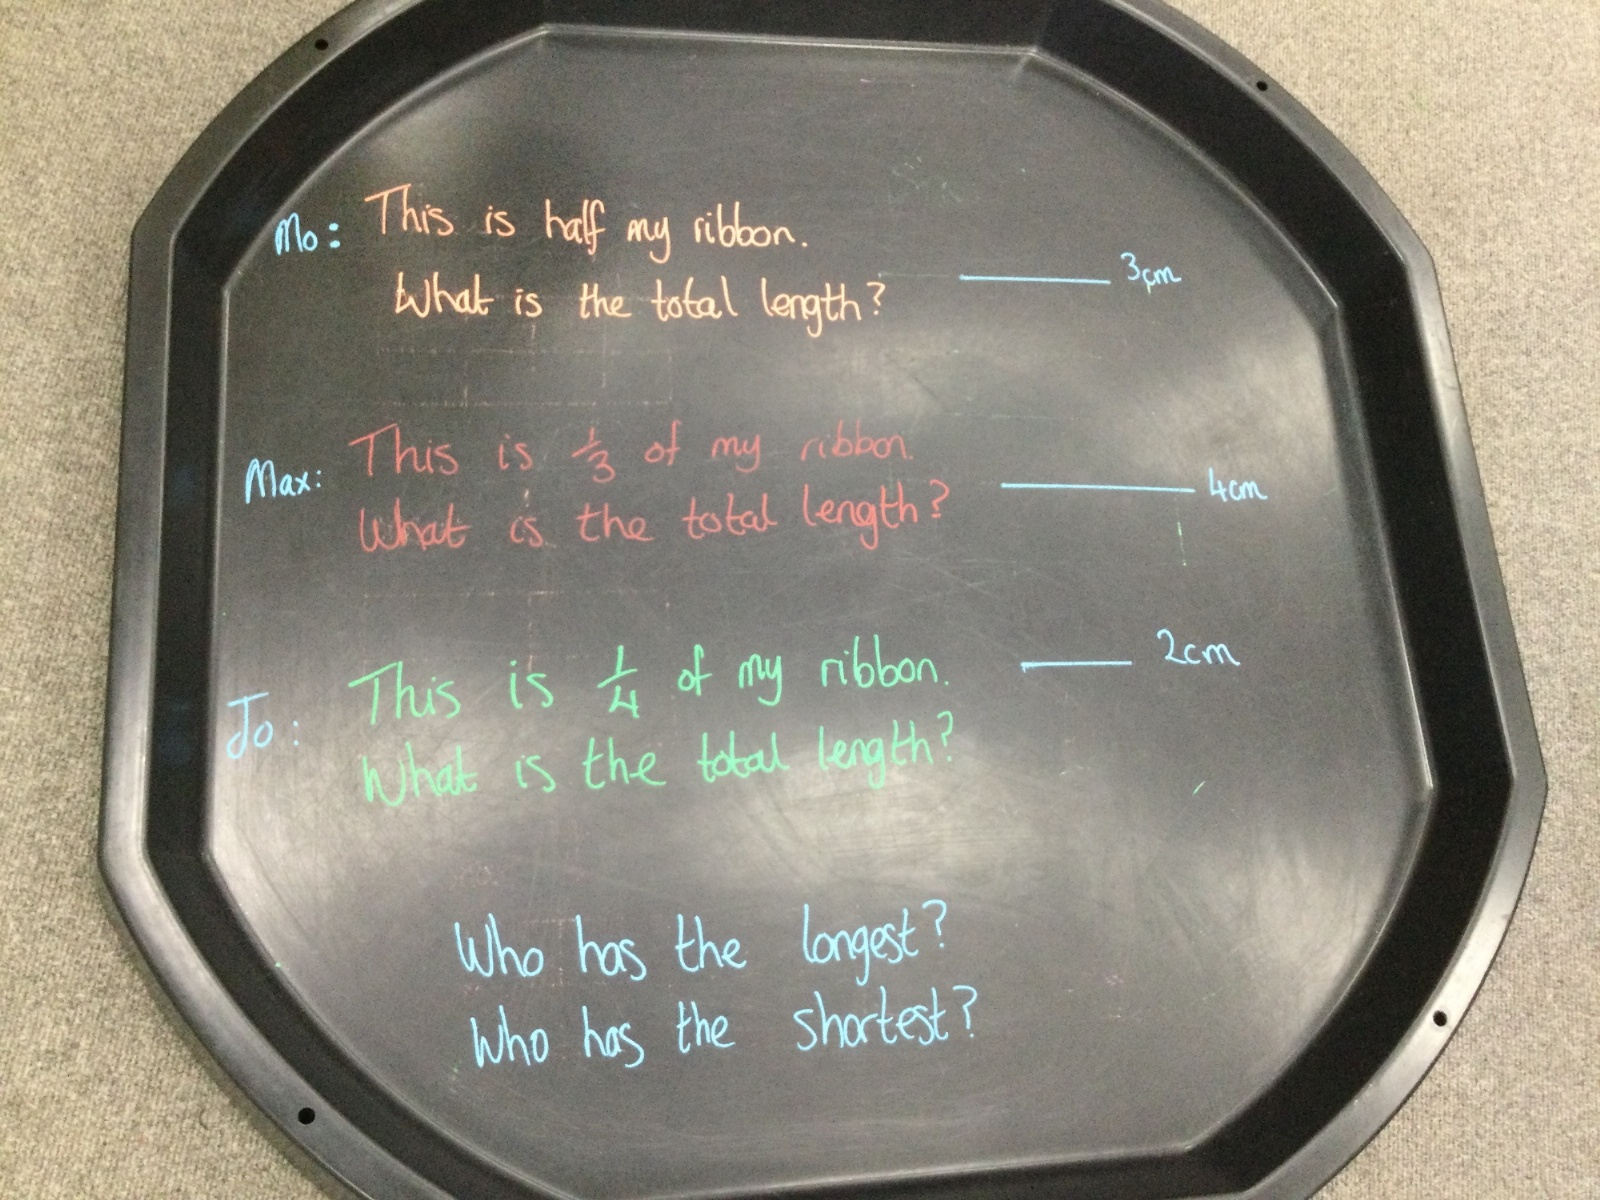 Mo: This is half my ribbon.
What is the total length? 3cm
Max: This is 1/3 of my ribbon.
What is the total length? 4cm
Jo: This is 1/4 of my ribbon. 2cm
What is the total length?
Who has the longest?
Who has the shortest?